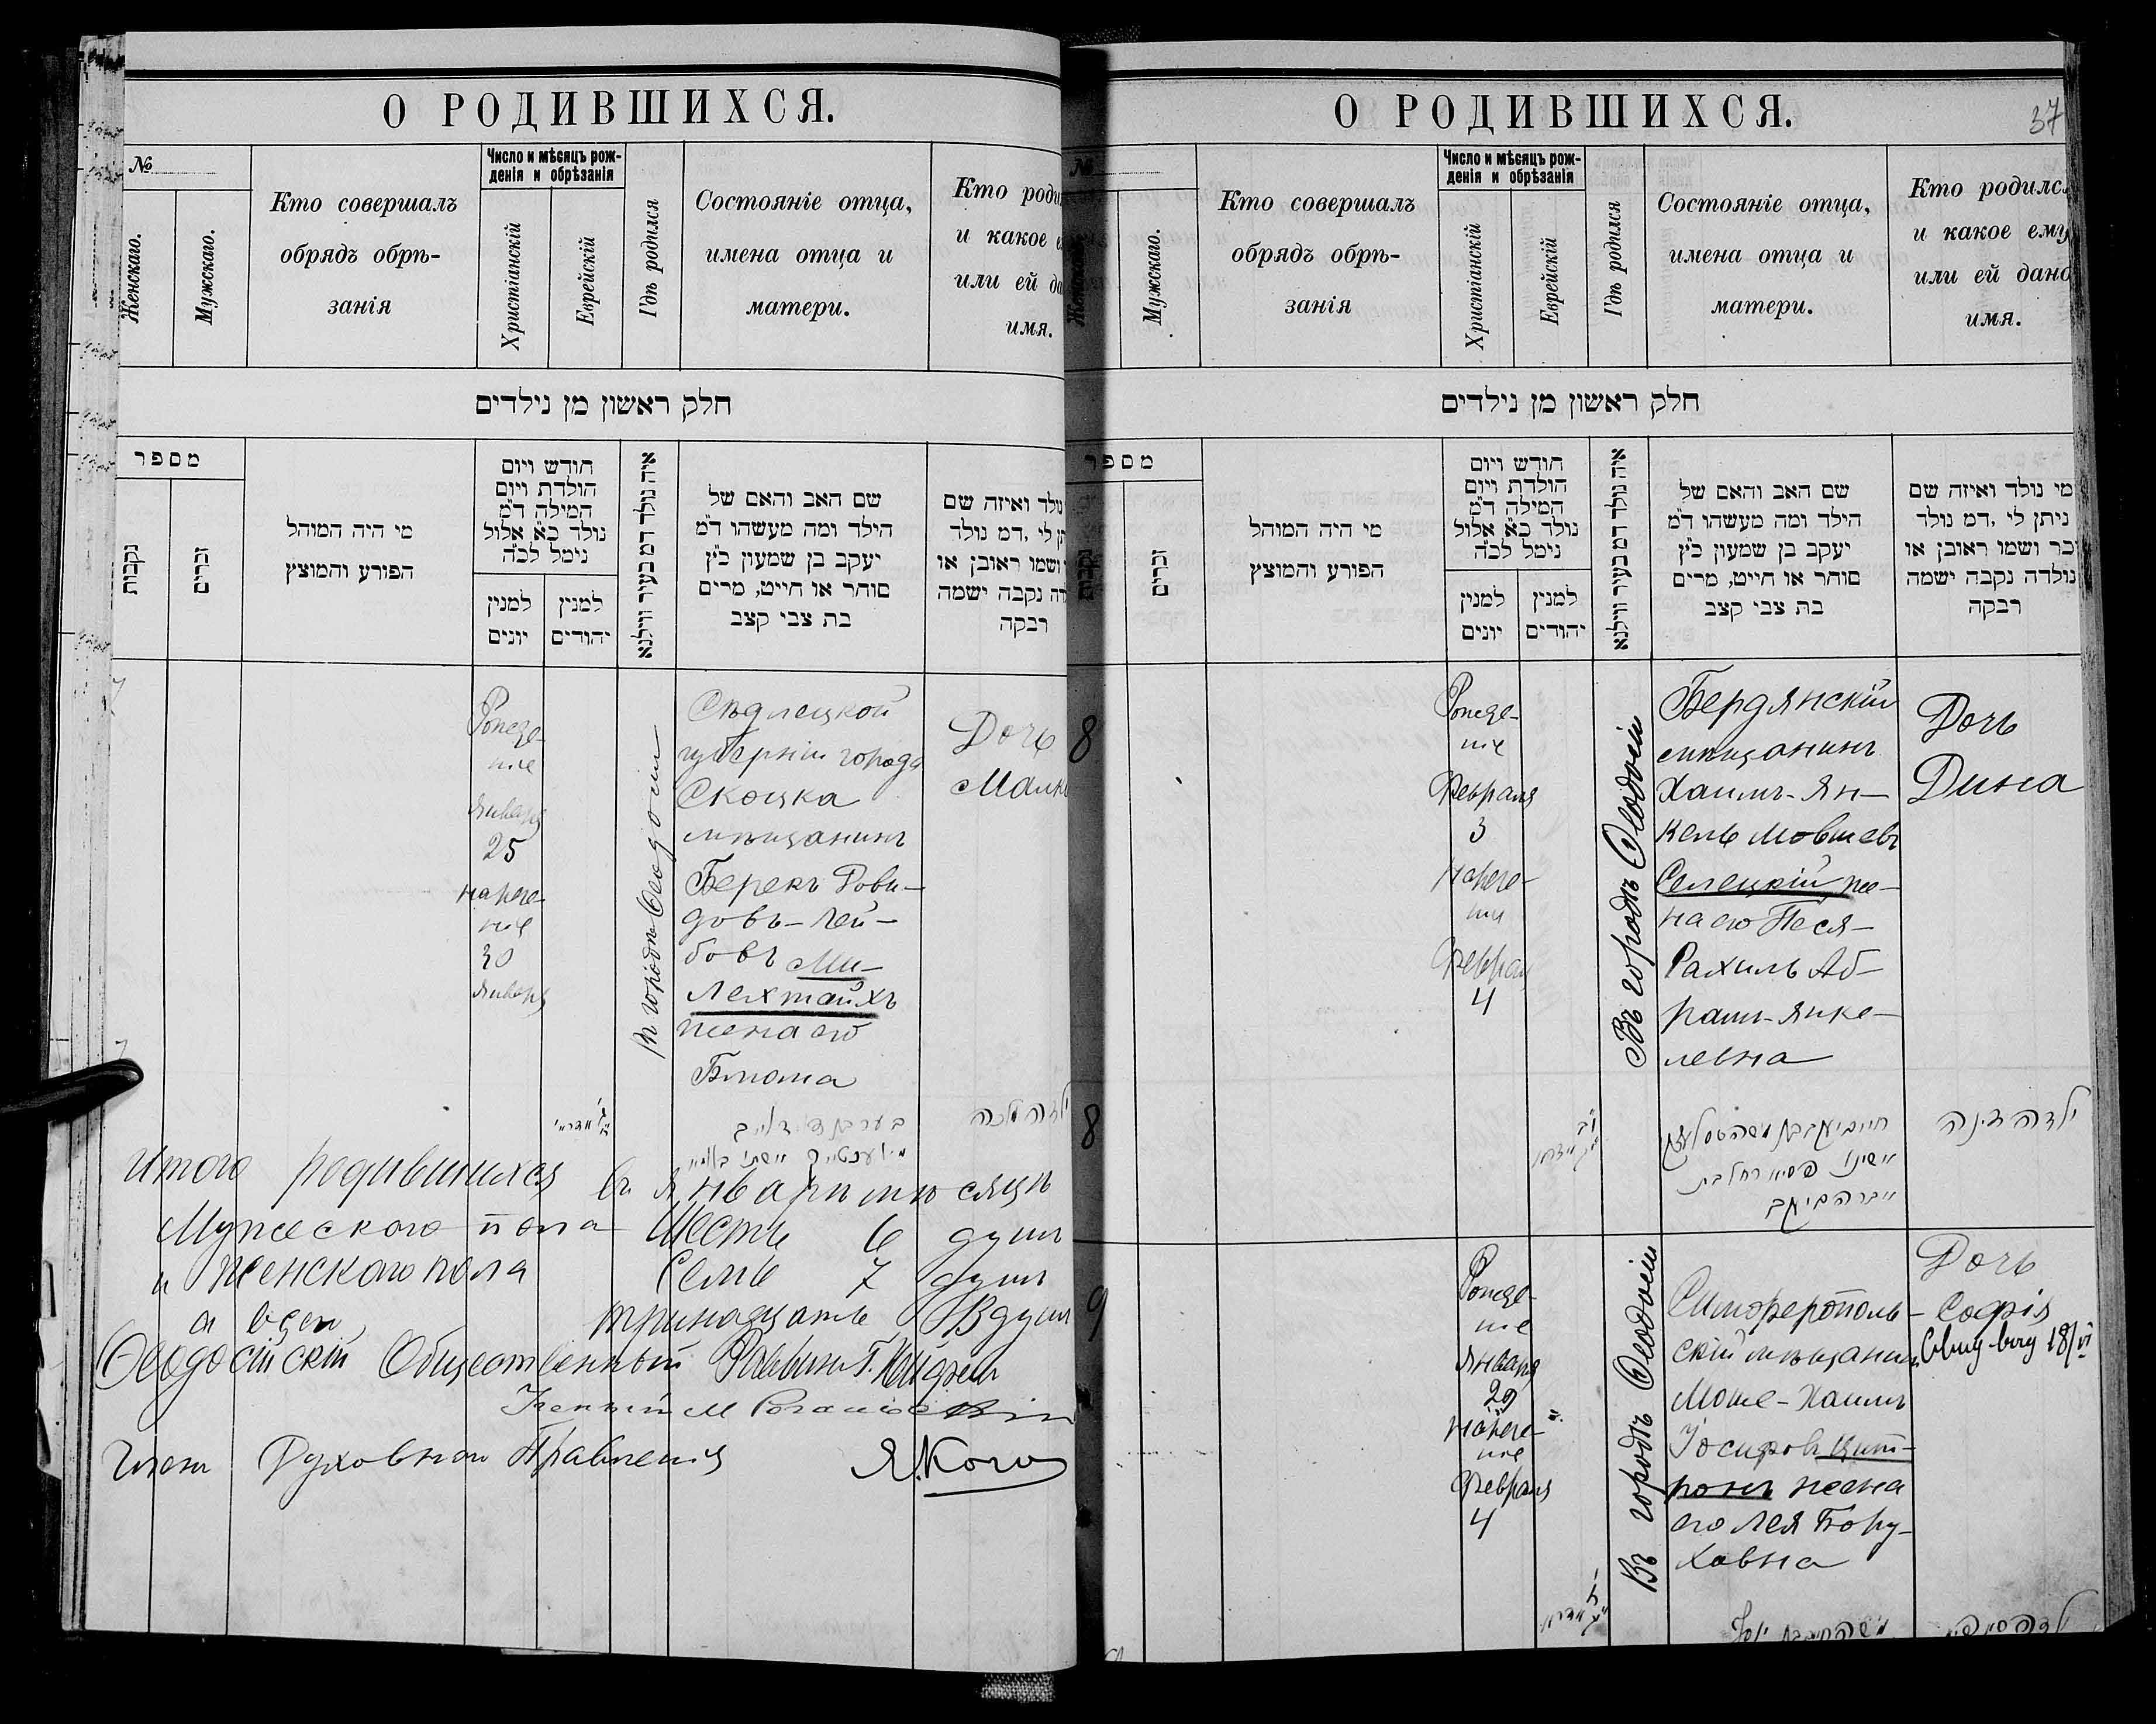 О РОДИВШИХСЯ.
№
Женскаго.
Мужскаго.
Кто совершалъ
обрядъ обрѣ-
занія
Число и мѣсяцъ рож-
денія и обрѣзанія
Христіанскій
Еврейскій
Гдѣ родился
Состояніе отца,
имена отца и
матери.
Кто роди
и какое е
или ей да
имя.
חלק ראשון מן נילדים
מספר
נקבות
זכרים
מי היה המוהל
הפורע והמוצץ
חודש ויום
הולדת ויום
המילה ד״מ
נולד כ״א אלול
נימל לכ״ה
למנין
יונים
למנין
יהודים
איה נולד דמ בעיר ווילנא
שם האב והאם של
הילד ומה מעשהו ד״מ
יעקב בן שמעון כ״ץ
סוחר או חייט, מרים
בת צבי קצב
נולד ואיזה שם
תן לי ,דמ נולד
ושמו ראובן או
דה נקבה ישמה
רבקה
7
Рожде-
ніе
Января
25
Нарече-
ніе
30
Января
Въ городѣ Ѳеодосіи
Сѣдлецкой
губерніи города
Скоцка
мѣщанинъ
Берекъ Дови-
довъ-Лей-
бовъ Ми-
лехтайхъ
жена его
Блюма
Дочь
Малка
ילדה מלכה
Итого родившихся въ Январѣ мѣсяцѣ
Мужескаго пола Шесть 6 душъ
и Женскаго пола Семь 7 душъ
а всего тринадцать 13 душъ
Ѳеодосійскій Общественный Раввинъ
Ученый М
Членъ Духовнаго Правленія Я.
О РОДИВШИХСЯ.
37
№
Женскаго.
Мужскаго.
Кто совершалъ
обрядъ обрѣ-
занія
Число и мѣсяцъ рож-
денія и обрѣзанія
Христіанскій
Еврейскій
Гдѣ родился
Состояніе отца,
имена отца и
матери.
Кто родился
и какое ему
или ей дано
имя.
חלק ראשון מן נילדים
מספר
נקבות
זכרים
מי היה המוהל
הפורע והמוצץ
חודש ויום
הולדת ויום
המילה ד״מ
נולד כ״א אלול
נימל לכ״ה
למנין
יונים
למנין
יהודים
איה נולד דמ בעיר ווילנא
שם האב והאם של
הילד ומה מעשהו ד״מ
יעקב בן שמעון כ״ץ
סוחר או חייט, מרים
בת צבי קצב
מי נולד ואיזה שם
ניתן לי ,דמ נולד
זכר ושמו ראובן או
נולדה נקבה ישמה
רבקה
8
Рожде-
ніе
Февраля
3
Нарече-
ніе
Февраля
4
Въ городѣ Ѳеодосіи
Бердянскій
мѣщанинъ
Хаимъ-Ян-
кель Мовшевъ
Селецкій же-
на его Песя-
Рахиль Аб-
рамъ-Янке-
левна
Дочь
Дина
8
ילדה דינה
9
Рожде-
ніе
Января
29
Нарече-
ніе
Февраля
4
Въ городѣ Ѳеодосіи
Симферополь-
скій мѣщанинъ
Моше-Хаимъ
Іосифовъ Цит-
ронъ жена
его Лея Бору-
ховна
Дочь
Софія